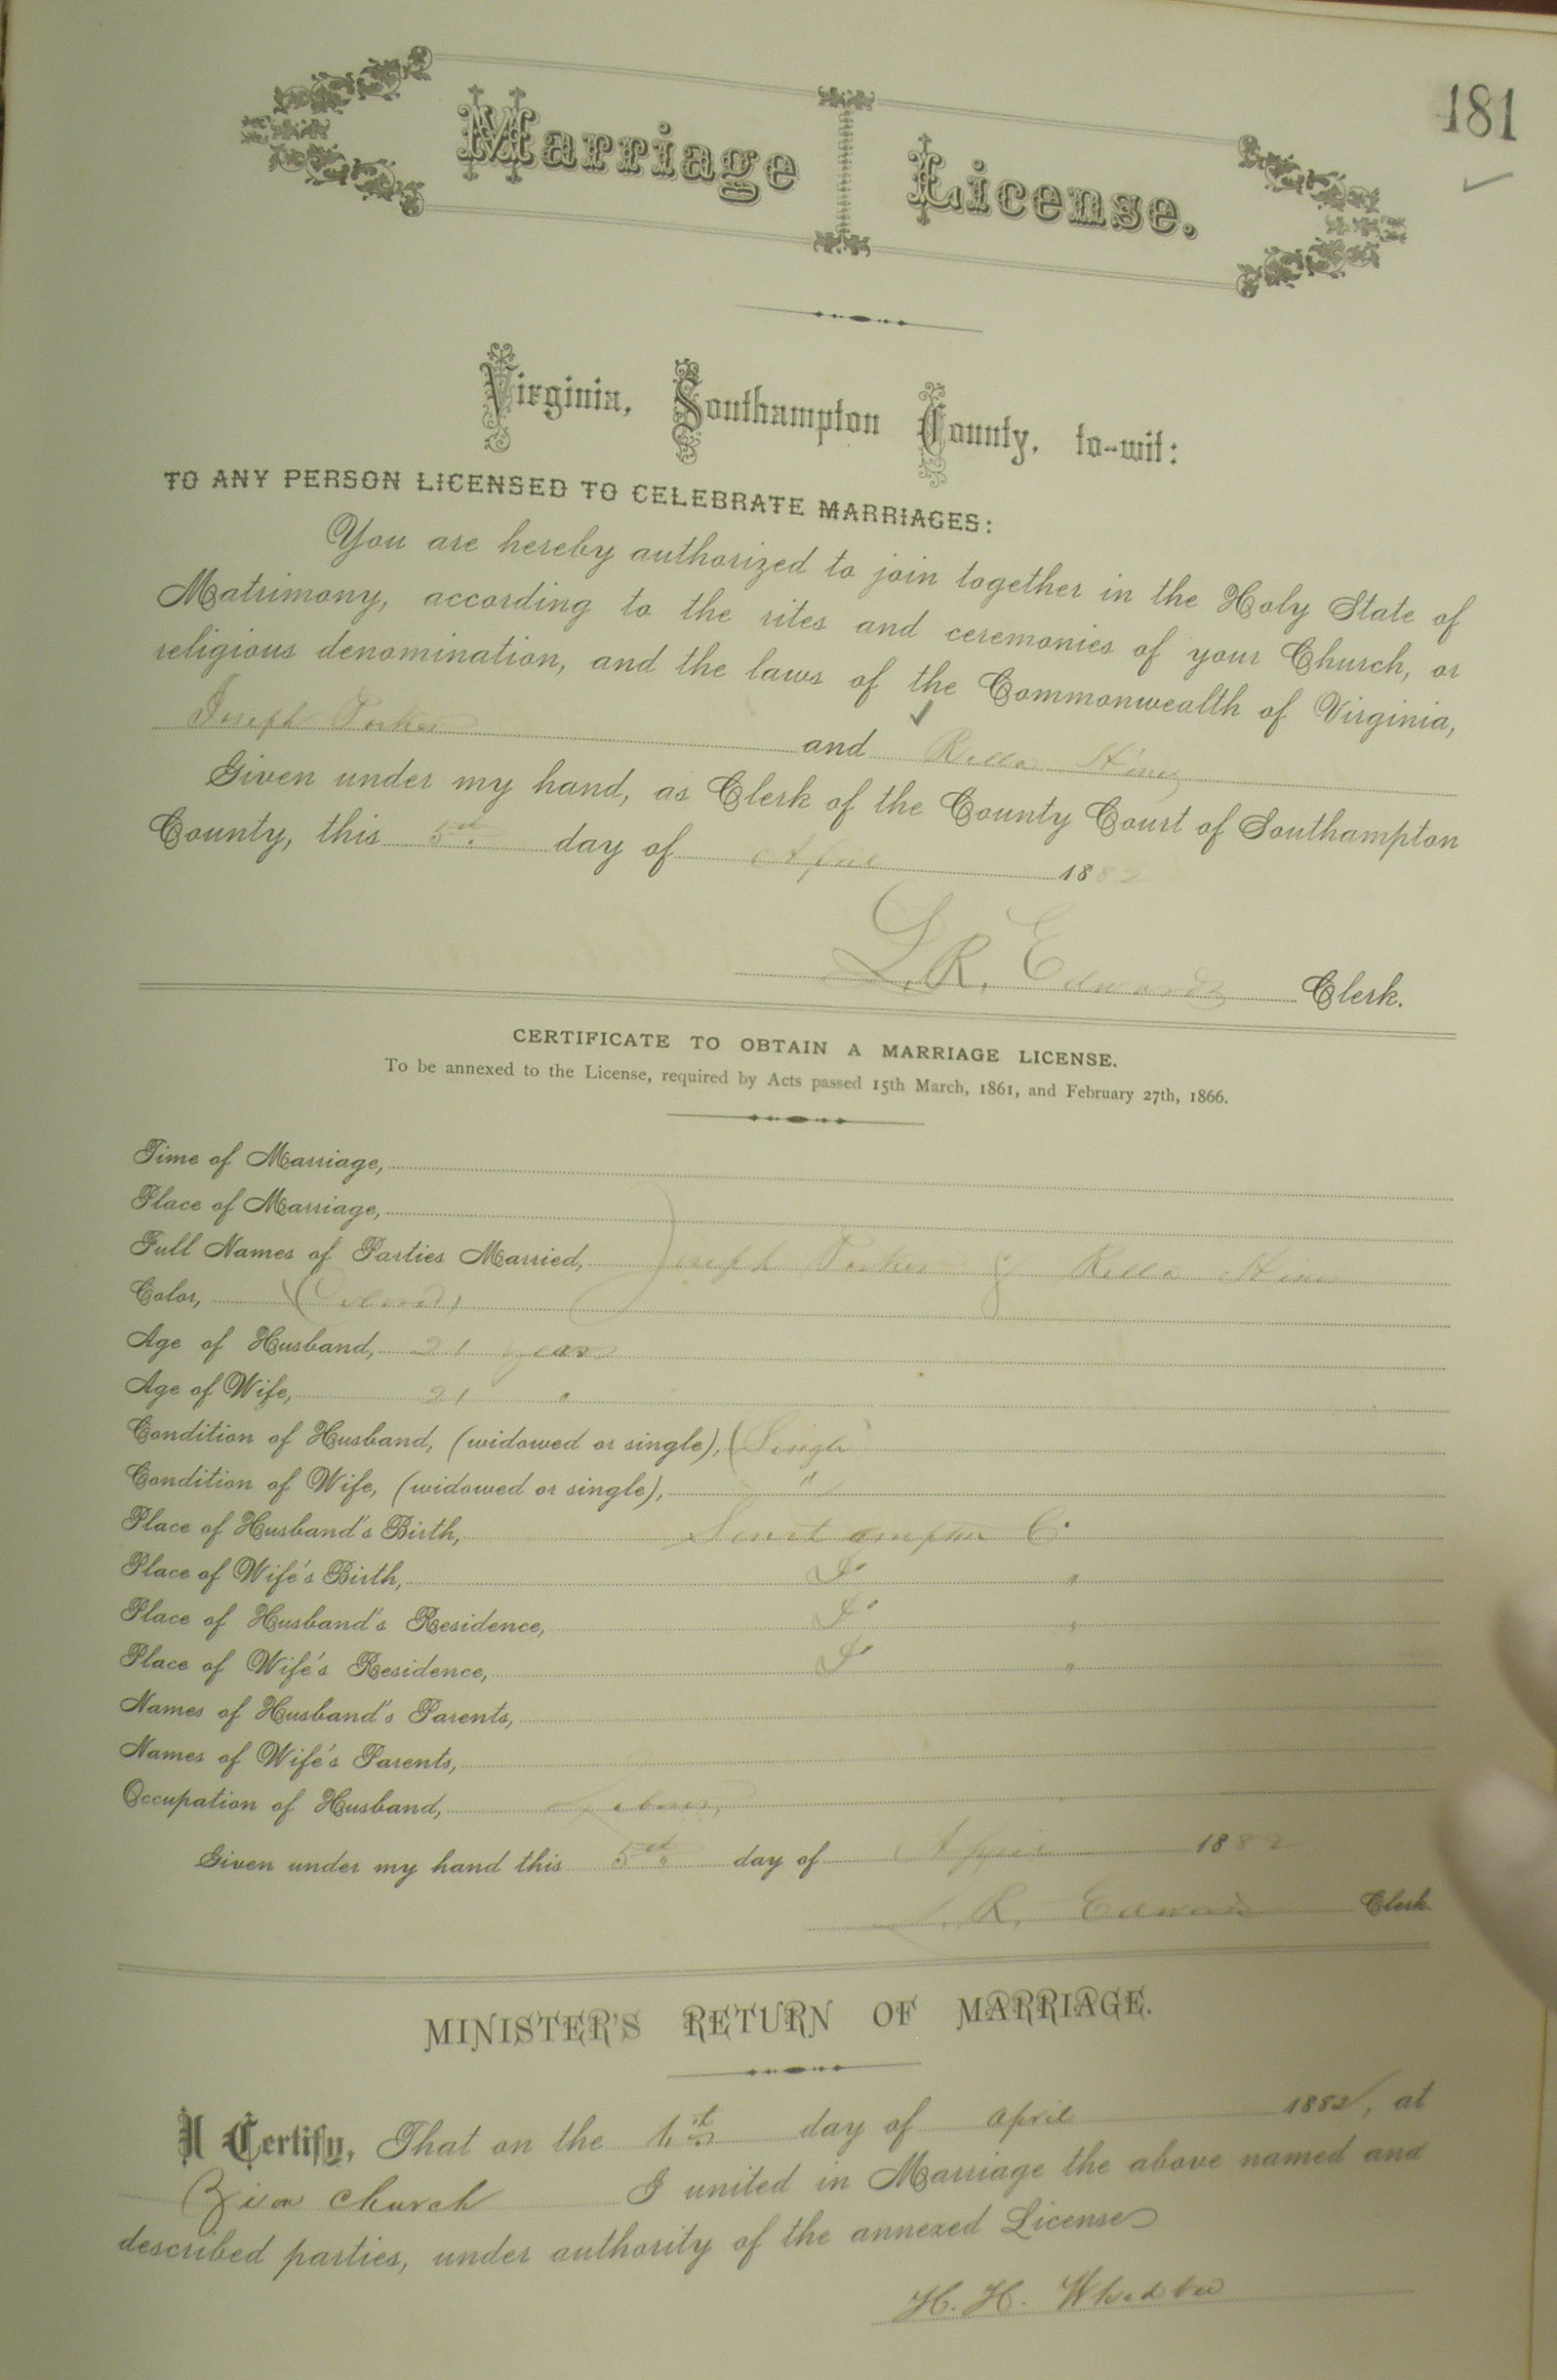 181
Marriage License.
Virginia, Southampton County, to-wit:
TO ANY PERSON LICENSED TO CELEBRATE MARRIAGES:
You are hereby authorized to join together in the Holy State of
Matrimony, according to the rites and ceremonies of your Church, or
religious denomination, and the laws of the Commonwealth of Virginia,
Joseph Parker and Rella Hines
Given under my hand, as Clerk of the County Court of Southampton
County, this 5th day of April 1882
L. R. Edwards Clerk.
CERTIFICATE TO OBTAIN A MARRIAGE LICENSE.
To be annexed to the License, required by Acts passed 15th March, 1861, and February 27th, 1866.
Time of Marriage,
Place of Marriage,
Full Names of Parties Married, Joseph Parker & Rella Hines
Color, (Colored)
Age of Husband, 21 years
Age of Wife, 21 "
Condition of Husband, (widowed or single), (Single)
Condition of Wife, (widowed or single), "
Place of Husband's Birth, Southampton Co
Place of Wife's Birth, Do "
Place of Husband's Residence, Do "
Place of Wife's Residence, Do "
Names of Husband's Parents,
Names of Wife's Parents,
Occupation of Husband, Laborer,
Given under my hand this 5th day of April 1882
L. R. Edwards Clerk.
MINISTER'S RETURN OF MARRIAGE.
I Certify, That on the day of april 1882, at
Zion church I united in Marriage the above named and
described parties, under authority of the annexed License
H. H.